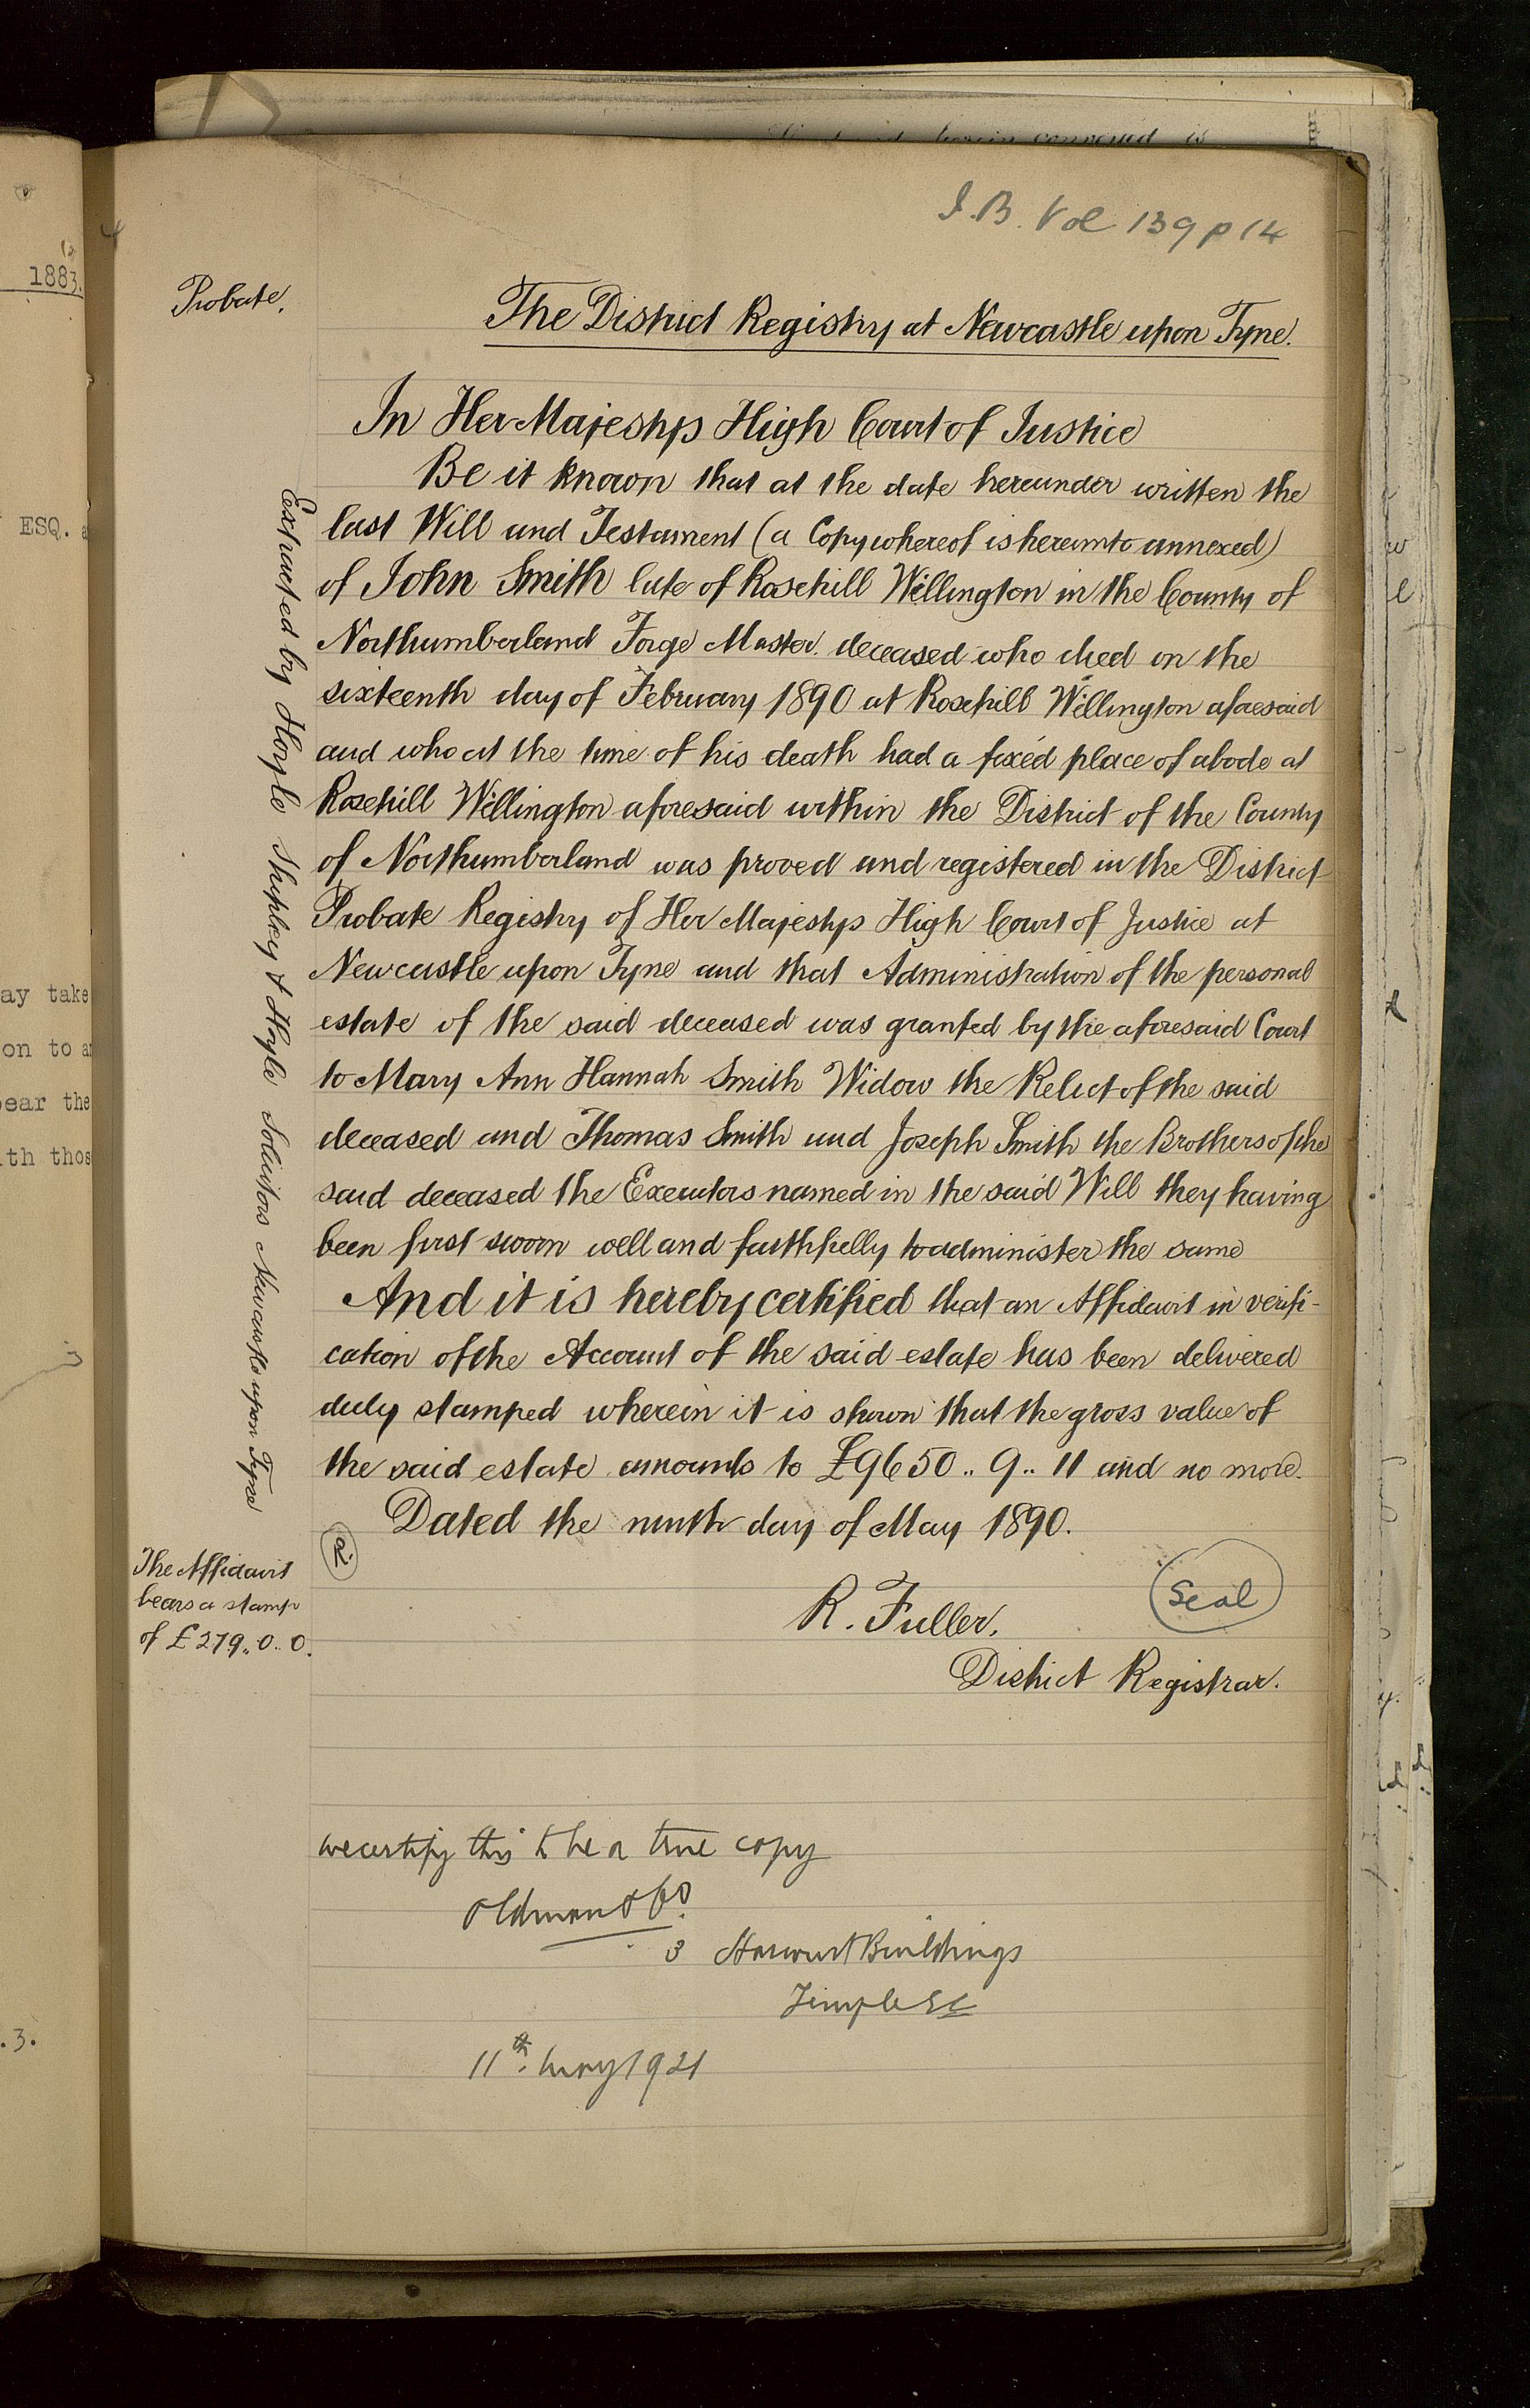 I.B. Vol 139 p 14
Probate.
The District Registry at Newcastle upon Tyne.
In Her Majestys High Court of Justice
Be it known that at the date hereunder written the
last Will and Testament (a Copy whereof is hereunto annexed)
of John Smith late of Rosehill Willington in the County of
Northumberland Forge Master deceased who died on the
sixteenth day of February 1890 at Rosehill Willington aforesaid
and who at the time of his death had a fixed place of abode at
Rosehill Willington aforesaid within the District of the County
of Northumberland was proved and registered in the District
Probate Registry of Her Majestys High Court of Justice at
Newcastle upon Tyne and that Administration of the personal
estate of the said deceased was granted by the aforesaid Court
to Mary Ann Hannah Smith Widow the Relict of the said
deceased and Thomas Smith and Joseph Smith the Brothers of the
said deceased the Executors named in the said Will they having
been first sworn well and faithfully to administer the same
And it is hereby certified that an Affidavit in verifi-
cation of the Account of the said estate has been delivered
duly stamped wherein it is shown that the gross value of
the said estate amounts to £9650.. 9.. 11 and no more.
Dated the ninth day of May 1890.
Extracted by Hoyle Shipley & Hoyle Solicitors Newcastle upon Tyne
The Affidavit
bears a stamp
of £279.. 0.. 0.
R. Fuller.
Seal
District Registrar.
we certify this to be a true copy
Oldman & Co.
3 Harcourt Buildings
Temple EC
11th. May 1921
1883.
ESQ.
ay take
on to
ear the
ith thos
.3.